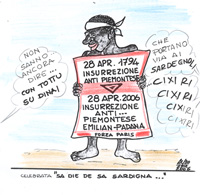 NON
SANNO
ANCORA
DIRE...
CON TOTTU
SU DINAI
CHE
PORTANO
VIA AI
SARDEGNOLI
CIXIRI
CIXIRI
CIXIRI
CIXIRI
28 APR. 1794
INSURREZIONE
ANTI PIEMONTESE
28 APR. 2006
INSURREZIONE
ANTI...
PIEMONTESE
EMILIAN-PADANA
FORZA PARIS
CELEBRATA "SA DIE DE SA SARDIGNA..."